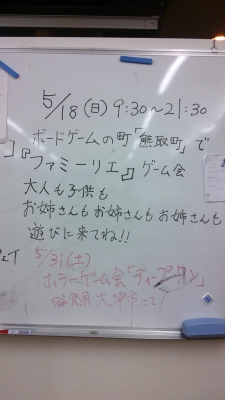 5/18(日) 9:30~21:30
ボードゲームの町「熊取町」で
『ファミーリエ』ゲーム会
大人も子供も
お姉さんもお姉さんもお姉さんも
遊びに来てね!!
5/31(土)
ホラーゲーム会「ディープワン」
滋賀県大津市にて!